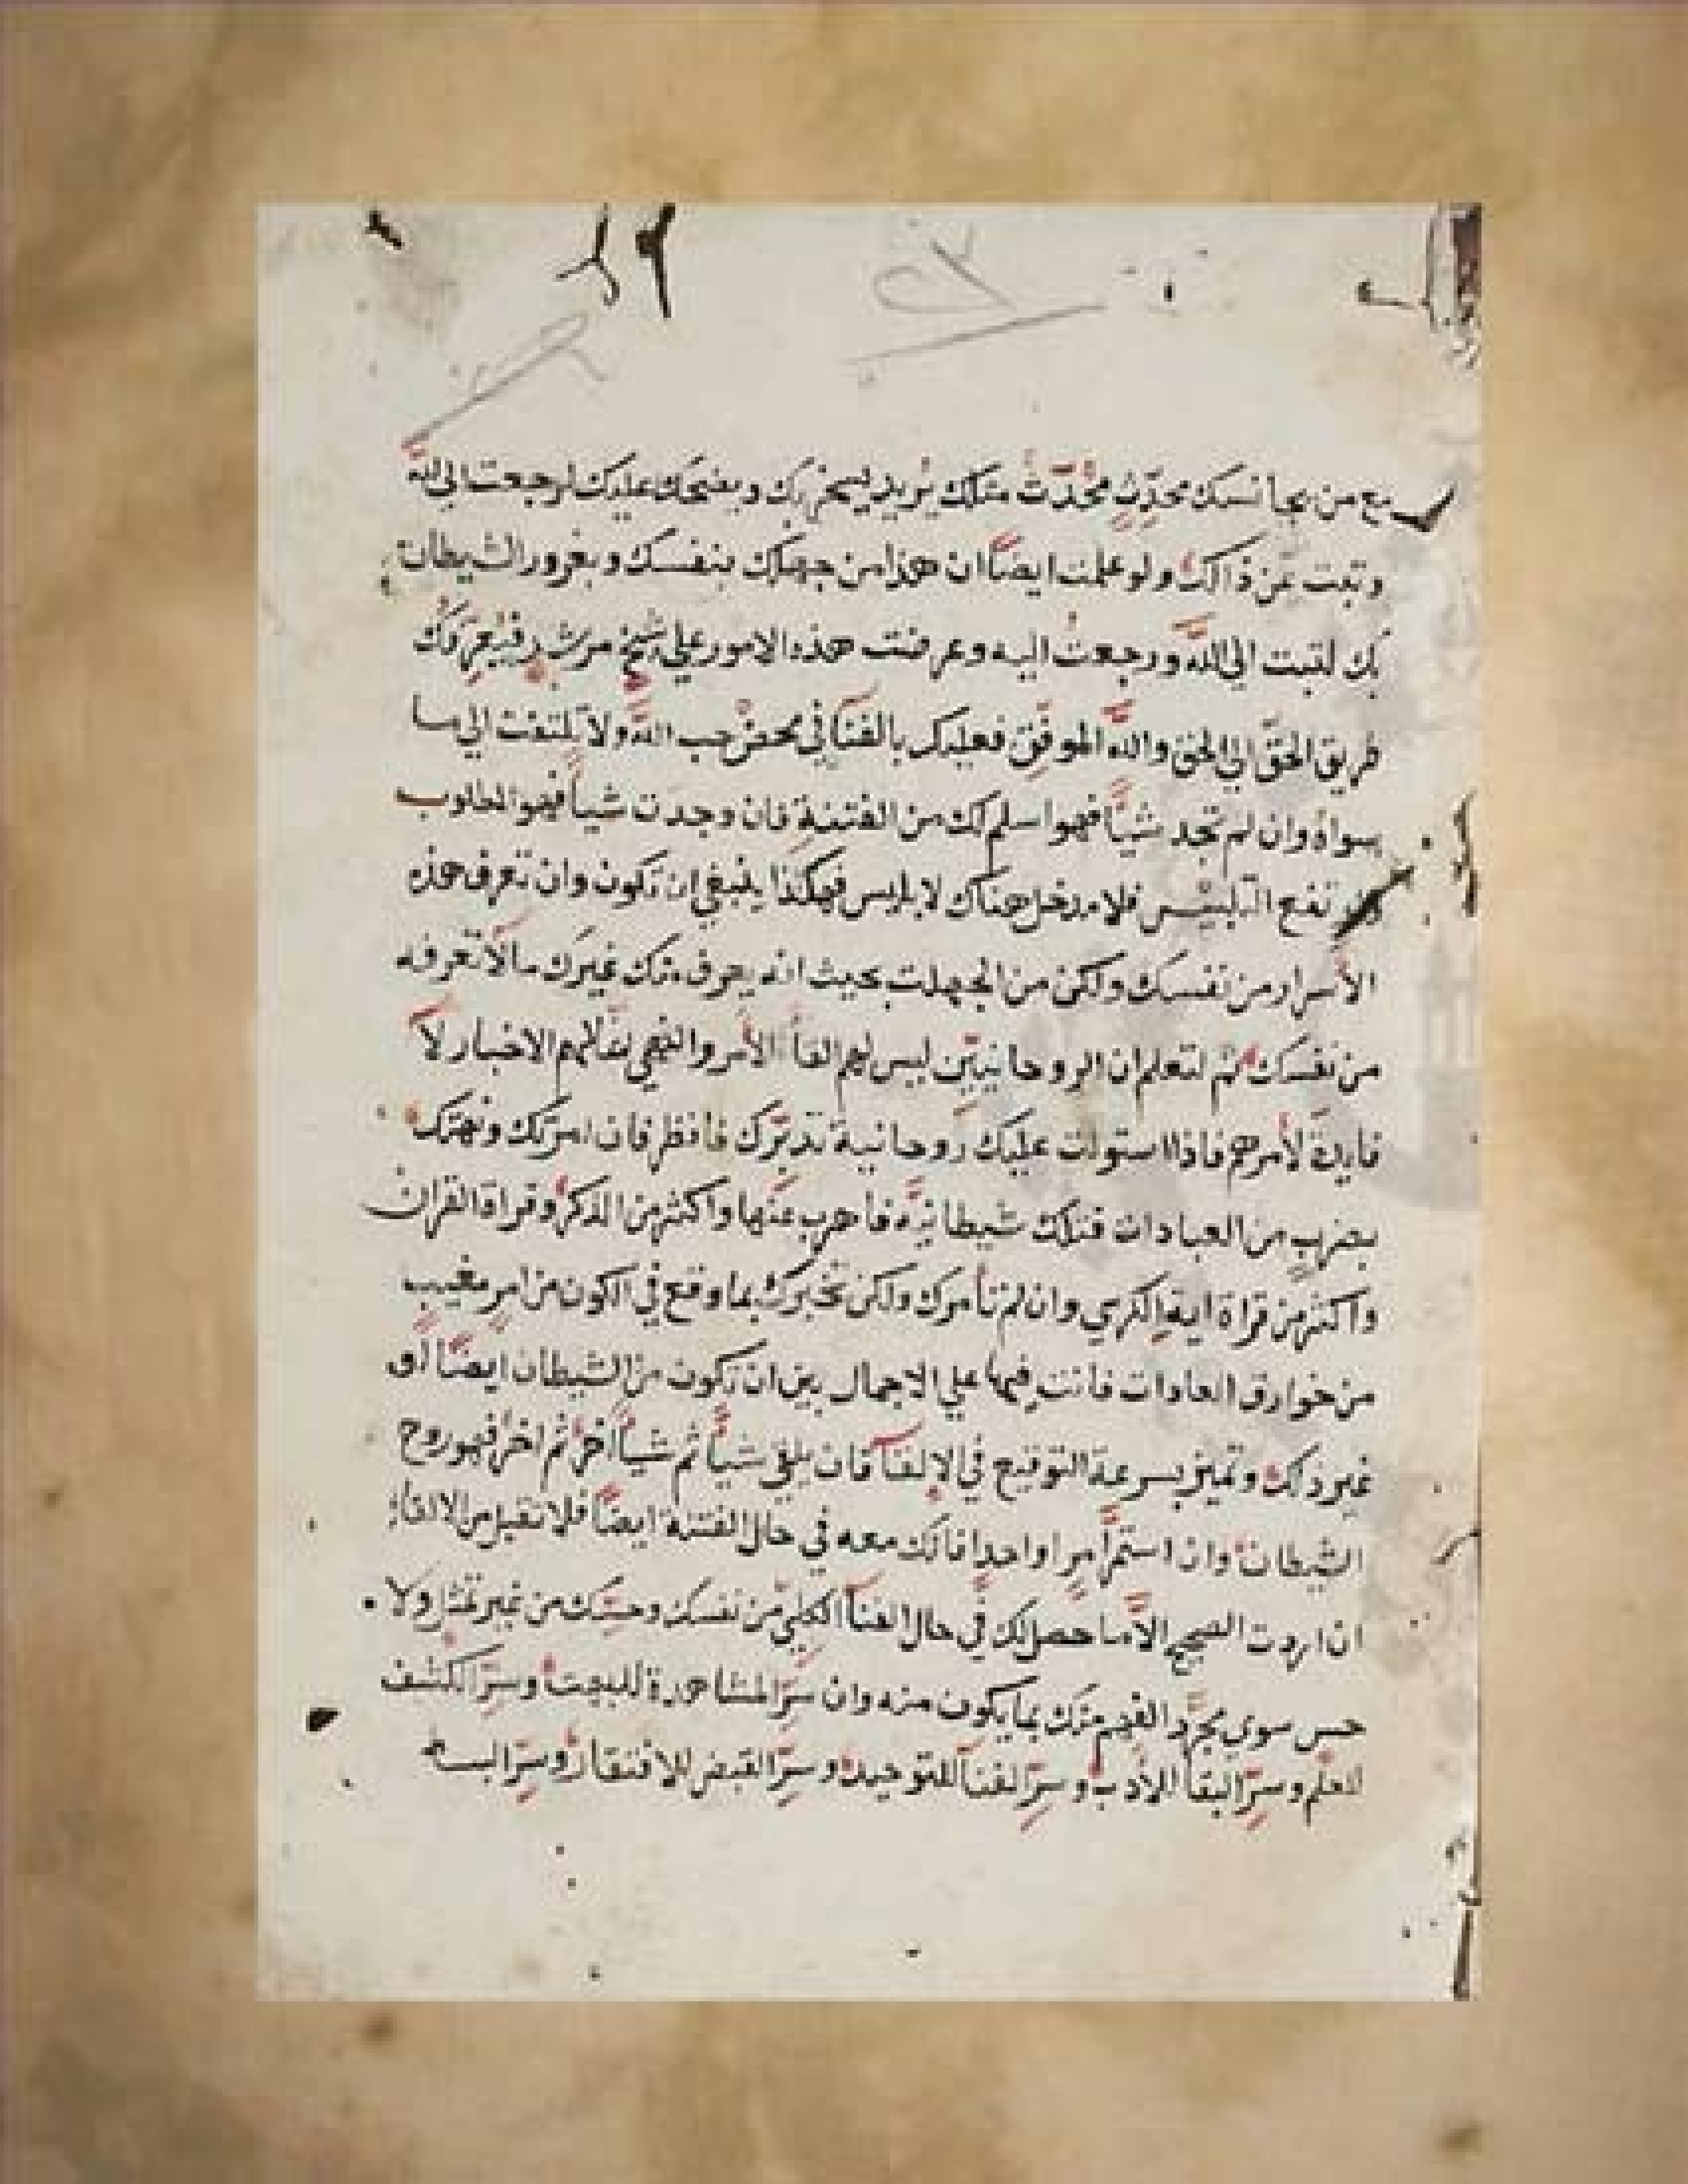 مع من يجانسك محدّثٍ محُدّثٌ مثلك يُريد ليسخر بك ويضحك عليك لرجعت الى الله
وتبت عن ذالك ولو علمت ايضًا ان هذا من جهلك بنفسك وبغرور الشيطان
بك لتبت الي الله ورجعت اليه وعرضت هذه الامور علي شيخ مرشد فيُعرّفك
طريق الحقّ الي الحق والله الموفّق فعليك بالفنآ في محض حب الله ولا تلتفت الي ما
سواه وان لم تجد شياً فهو اسلم لك من الفتنة فان وجدت شياً فهو المطلوب
تفع التلبيس فلا مدخل هناك لابليس فهكذا ينبغي ان تكون وان تعرف هذه
الأسرار من نفسك ولكن من الجهلت بحيث انه يعرف منك غيرك ما لا تعرفه
من نفسك ثم لتعلم ان الروحانيّين ليس لهم القأ الأمر والنهي انما لهم الاخبار لا
فايدة لأمرهم فاذا استولت عليك رَوحانية تدبّرك فانظر فان امرتك ونهتك
بضربٍ من العبادات فتلك شيطانيّه فاهرب عنها واكثر من الذكر وقراة القران
واكثر من قراة اية الكرسي وان لم تأمرك ولكن تخبرك بما وقع في الكون من امرٍ مغيب
من خوارق العادات فانت فيها علي الاجمال بين ان تكون من الشيطان ايضًا أو
غير ذلك وتميز بسرعة التوقيع في الإلقآ فان يلقي شياً ثم شياً اخر ثم اخر فهو روح
الشيطان وان استمرّ امرا واحدا فانك معه في حال الفتنة ايضًا فلا تقبل من الالقا
ان اردت الصحيح الاّ ما حصل لك في حال الفنآ الكلّي من نفسك وحسّك من غير تمثل ولا
حس سوي مجرّد الفهم منك بما يكون منه وان سرّ المشاهدة للبهت وسرّ الكشف
للعلم وسرّ البقأ للأدب وسرّ الفنآ للتوحيد وسرّ القبض للافتقار وسرّ البسط